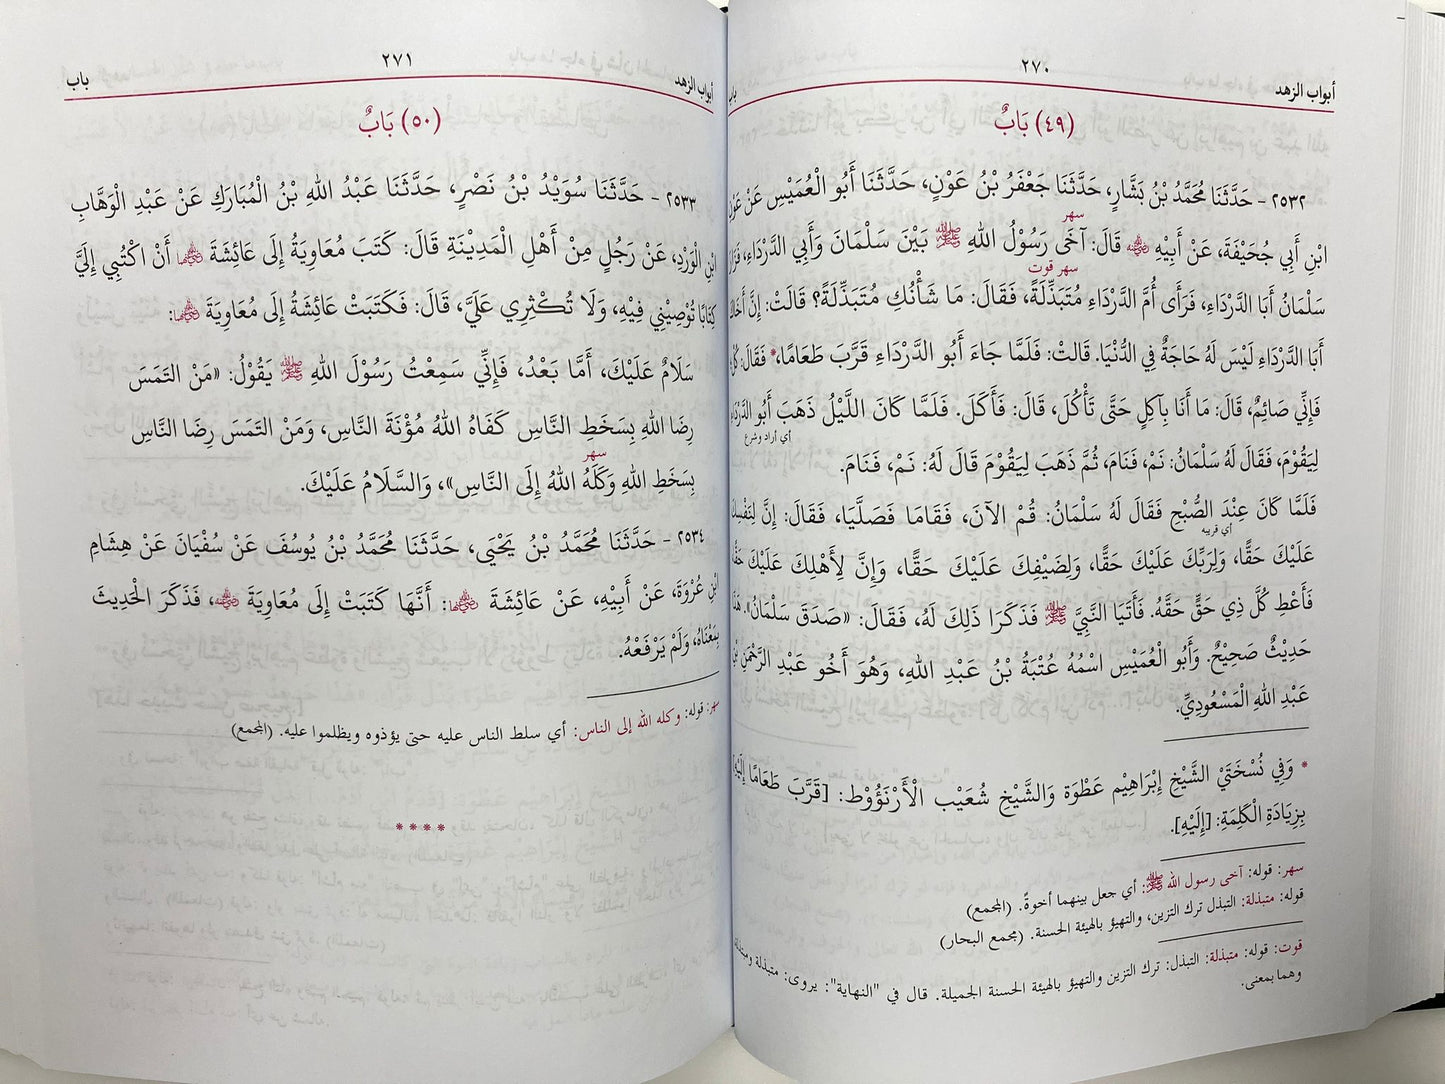 أبواب الزهد ٢٧٠ باب
(٤٩) بَابٌ
٢٥٣٢ - حَدَّثَنَا مُحَمَّدُ بْنُ بَشَّارٍ، حَدَّثَنَا جَعْفَرُ بْنُ عَوْنٍ، حَدَّثَنَا أَبُو الْعُمَيْسِ عَنْ عَوْنِ
سهر
ابْنِ أَبِي جُحَيْفَةَ، عَنْ أَبِيْهِ ﷺ قَالَ: آخَى رَسُوْلُ اللهِ ﷺ بَيْنَ سَلْمَانَ وَأَبِي الدَّرْدَاءِ، فَزَارَ
سهر قوت
سَلْمَانُ أَبَا الدَّرْدَاءِ، فَرَأَى أُمَّ الدَّرْدَاءِ مُتَبَذِّلَةً، فَقَالَ: مَا شَأْنُكِ مُتَبَذِّلَةً؟ قَالَتْ: إِنَّ أَخَاكَ
أَبَا الدَّرْدَاءِ لَيْسَ لَهُ حَاجَةٌ فِي الدُّنْيَا. قَالَتْ: فَلَمَّا جَاءَ أَبُو الدَّرْدَاءِ قَرَّبَ طَعَامًا،* فَقَالَ: كُلْ
فَإِنِّي صَائِمٌ، قَالَ: مَا أَنَا بِآكِلٍ حَتَّى تَأْكُلَ، قَالَ: فَأَكَلَ. فَلَمَّا كَانَ اللَّيْلُ ذَهَبَ أَبُو الدَّرْدَاءِ
أي أراد وشرع
لِيَقُوْمَ، فَقَالَ لَهُ سَلْمَانُ: نَمْ، فَنَامَ، ثُمَّ ذَهَبَ لِيَقُوْمَ قَالَ لَهُ: نَمْ، فَنَامَ.
فَلَمَّا كَانَ عِنْدَ الصُّبْحِ فَقَالَ لَهُ سَلْمَانُ: قُمْ الآنَ، فَقَامَا فَصَلَّيَا، فَقَالَ: إِنَّ لِنَفْسِكَ
أي قريبه
عَلَيْكَ حَقًّا، وَلِرَبِّكَ عَلَيْكَ حَقًّا، وَلِضَيْفِكَ عَلَيْكَ حَقًّا، وَإِنَّ لِأَهْلِكَ عَلَيْكَ حَقًّا
فَأَعْطِ كُلَّ ذِي حَقٍّ حَقَّهُ. فَأَتَيَا النَّبِيَّ ﷺ فَذَكَرَا ذَلِكَ لَهُ، فَقَالَ: «صَدَقَ سَلْمَانُ». هَذَا
حَدِيْثٌ صَحِيْحٌ. وَأَبُو الْعُمَيْسِ اسْمُهُ عُتْبَةُ بْنُ عَبْدِ اللهِ، وَهُوَ أَخُو عَبْدِ الرَّحْمَنِ بْنِ
عَبْدِ اللهِ الْمَسْعُوْدِيِّ.
* وَفِي نُسْخَتَيْ الشَّيْخِ إِبْرَاهِيْم عَطْوَة وَالشَّيْخِ شُعَيْب الْأَرْنَؤُوْط: [قَرَّبَ طَعَامًا إِلَيْهِ]
بِزِيَادَةِ الْكَلِمَةِ: [إِلَيْهِ].
سهر: قوله: آخى رسول الله ﷺ: أي جعل بينهما أخوةً. (المجمع)
قوله: متبذلة: التبذل ترك التزين، والتهيؤ بالهيئة الحسنة. (مجمع البحار)
قوت: قوله: متبذلة: التبذل: ترك التزين والتهيؤ بالهيئة الحسنة الجميلة. قال في "النهاية": يروى: متبذلة ومبتذلة
وهما بمعنى.
أبواب الزهد ٢٧١ باب
(٥٠) بَابٌ
٢٥٣٣ - حَدَّثَنَا سُوَيْدُ بْنُ نَصْرٍ، حَدَّثَنَا عَبْدُ اللهِ بْنُ الْمُبَارَكِ عَنْ عَبْدِ الْوَهَّابِ
ابْنِ الْوَرْدِ، عَنْ رَجُلٍ مِنْ أَهْلِ الْمَدِيْنَةِ قَالَ: كَتَبَ مُعَاوِيَةُ إِلَى عَائِشَةَ رضي الله عنها أَنْ اكْتُبِي إِلَيَّ
كِتَابًا تُوْصِيْنِي فِيْهِ، وَلَا تُكْثِرِي عَلَيَّ، قَالَ: فَكَتَبَتْ عَائِشَةُ إِلَى مُعَاوِيَةَ رضي الله عنهما:
سَلَامٌ عَلَيْكَ، أَمَّا بَعْدُ، فَإِنِّي سَمِعْتُ رَسُوْلَ اللهِ ﷺ يَقُوْلُ: «مَنْ التَمَسَ
رِضَا اللهِ بِسَخَطِ النَّاسِ كَفَاهُ اللهُ مُؤْنَةَ النَّاسِ، وَمَنْ التَمَسَ رِضَا النَّاسِ
سهر
بِسَخَطِ اللهِ وَكَلَهُ اللهُ إِلَى النَّاسِ»، وَالسَّلَامُ عَلَيْكَ.
٢٥٣٤ - حَدَّثَنَا مُحَمَّدُ بْنُ يَحْيَى، حَدَّثَنَا مُحَمَّدُ بْنُ يُوسُفَ عَنْ سُفْيَانَ عَنْ هِشَامِ
ابْنِ عُرْوَةَ، عَنْ أَبِيْهِ، عَنْ عَائِشَةَ رضي الله عنها: أَنَّهَا كَتَبَتْ إِلَى مُعَاوِيَةَ رضي الله عنه، فَذَكَرَ الْحَدِيثَ
بِمَعْنَاهُ، وَلَمْ يَرْفَعْهُ.
سهر: قوله: وكله الله إلى الناس: أي سلط الناس عليه حتى يؤذوه ويظلموا عليه. (المجمع)
* * * *